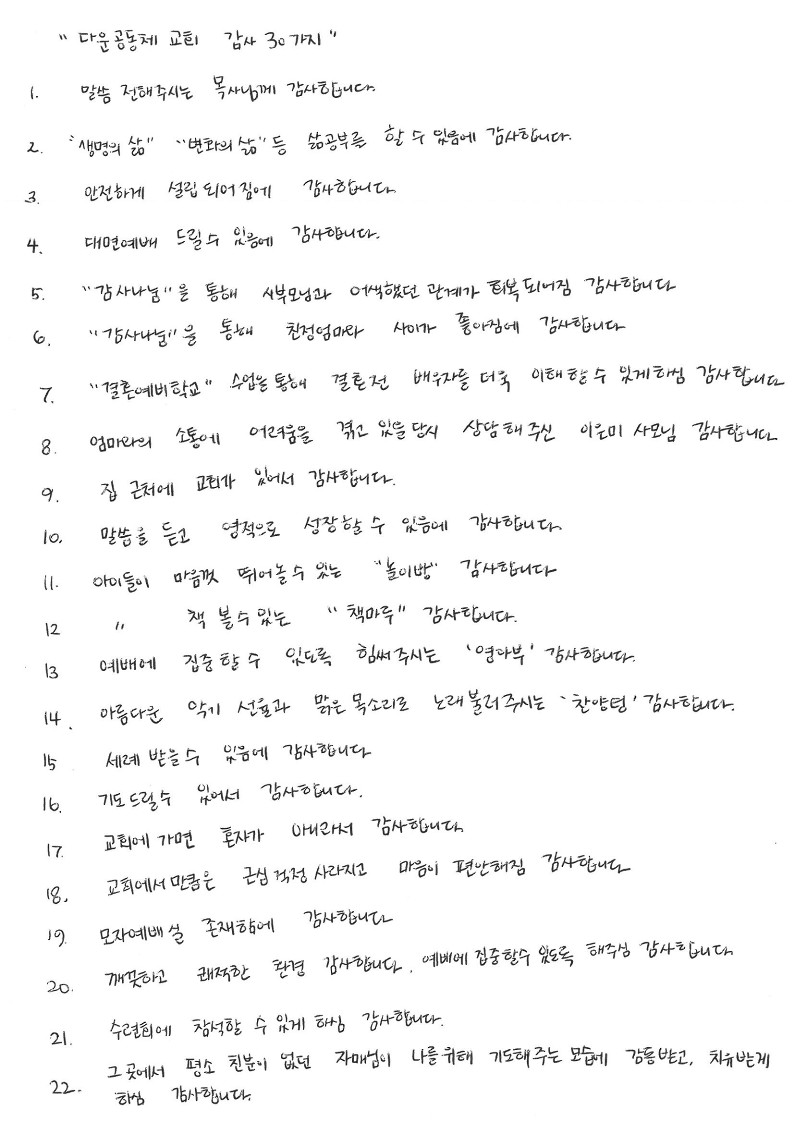 "다운공동체 교회 감사 30가지"
1. 말씀 전해주시는 목사님께 감사합니다.
2. "생명의 삶" "변화의 삶" 등 삶공부를 할 수 있음에 감사합니다.
3. 안전하게 설립되어짐에 감사합니다.
4. 대면예배 드릴수 있음에 감사합니다.
5. "감사나눔"을 통해 시부모님과 어색했던 관계가 회복되어짐 감사합니다
6. "감사나눔"을 통해 친정엄마와 사이가 좋아짐에 감사합니다
7. "결혼예비학교" 수업을 통해 결혼전 배우자를 더욱 이해할 수 있게하심 감사합니다
8. 엄마와의 소통에 어려움을 겪고 있을당시 상담해주신 이은미 사모님 감사합니다
9. 집 근처에 교회가 있어서 감사합니다.
10. 말씀을 듣고 영적으로 성장할 수 있음에 감사합니다.
11. 아이들이 마음껏 뛰어놀수 있는 "놀이방" 감사합니다
12 〃 책 볼수있는 "책마루" 감사합니다.
13 예배에 집중할 수 있도록 힘써주시는 '영아부' 감사합니다.
14. 아름다운 악기 선율과 맑은 목소리로 노래불러주시는 '찬양팀' 감사합니다.
15 세례 받을수 있음에 감사합니다
16. 기도드릴수 있어서 감사합니다.
17. 교회에 가면 혼자가 아니라서 감사합니다
18. 교회에서 만큼은 근심 걱정 사라지고 마음이 편안해짐 감사합니다
19. 모자예배실 존재함에 감사합니다
20. 깨끗하고 쾌적한 환경 감사합니다. 예배에 집중할수 있도록 해주심 감사합니다.
21. 수련회에 참석할 수 있게 하심 감사합니다.
22. 그 곳에서 평소 친분이 없던 자매님이 나를위해 기도해주는 모습에 감동받고, 치유받게
하심 감사합니다.